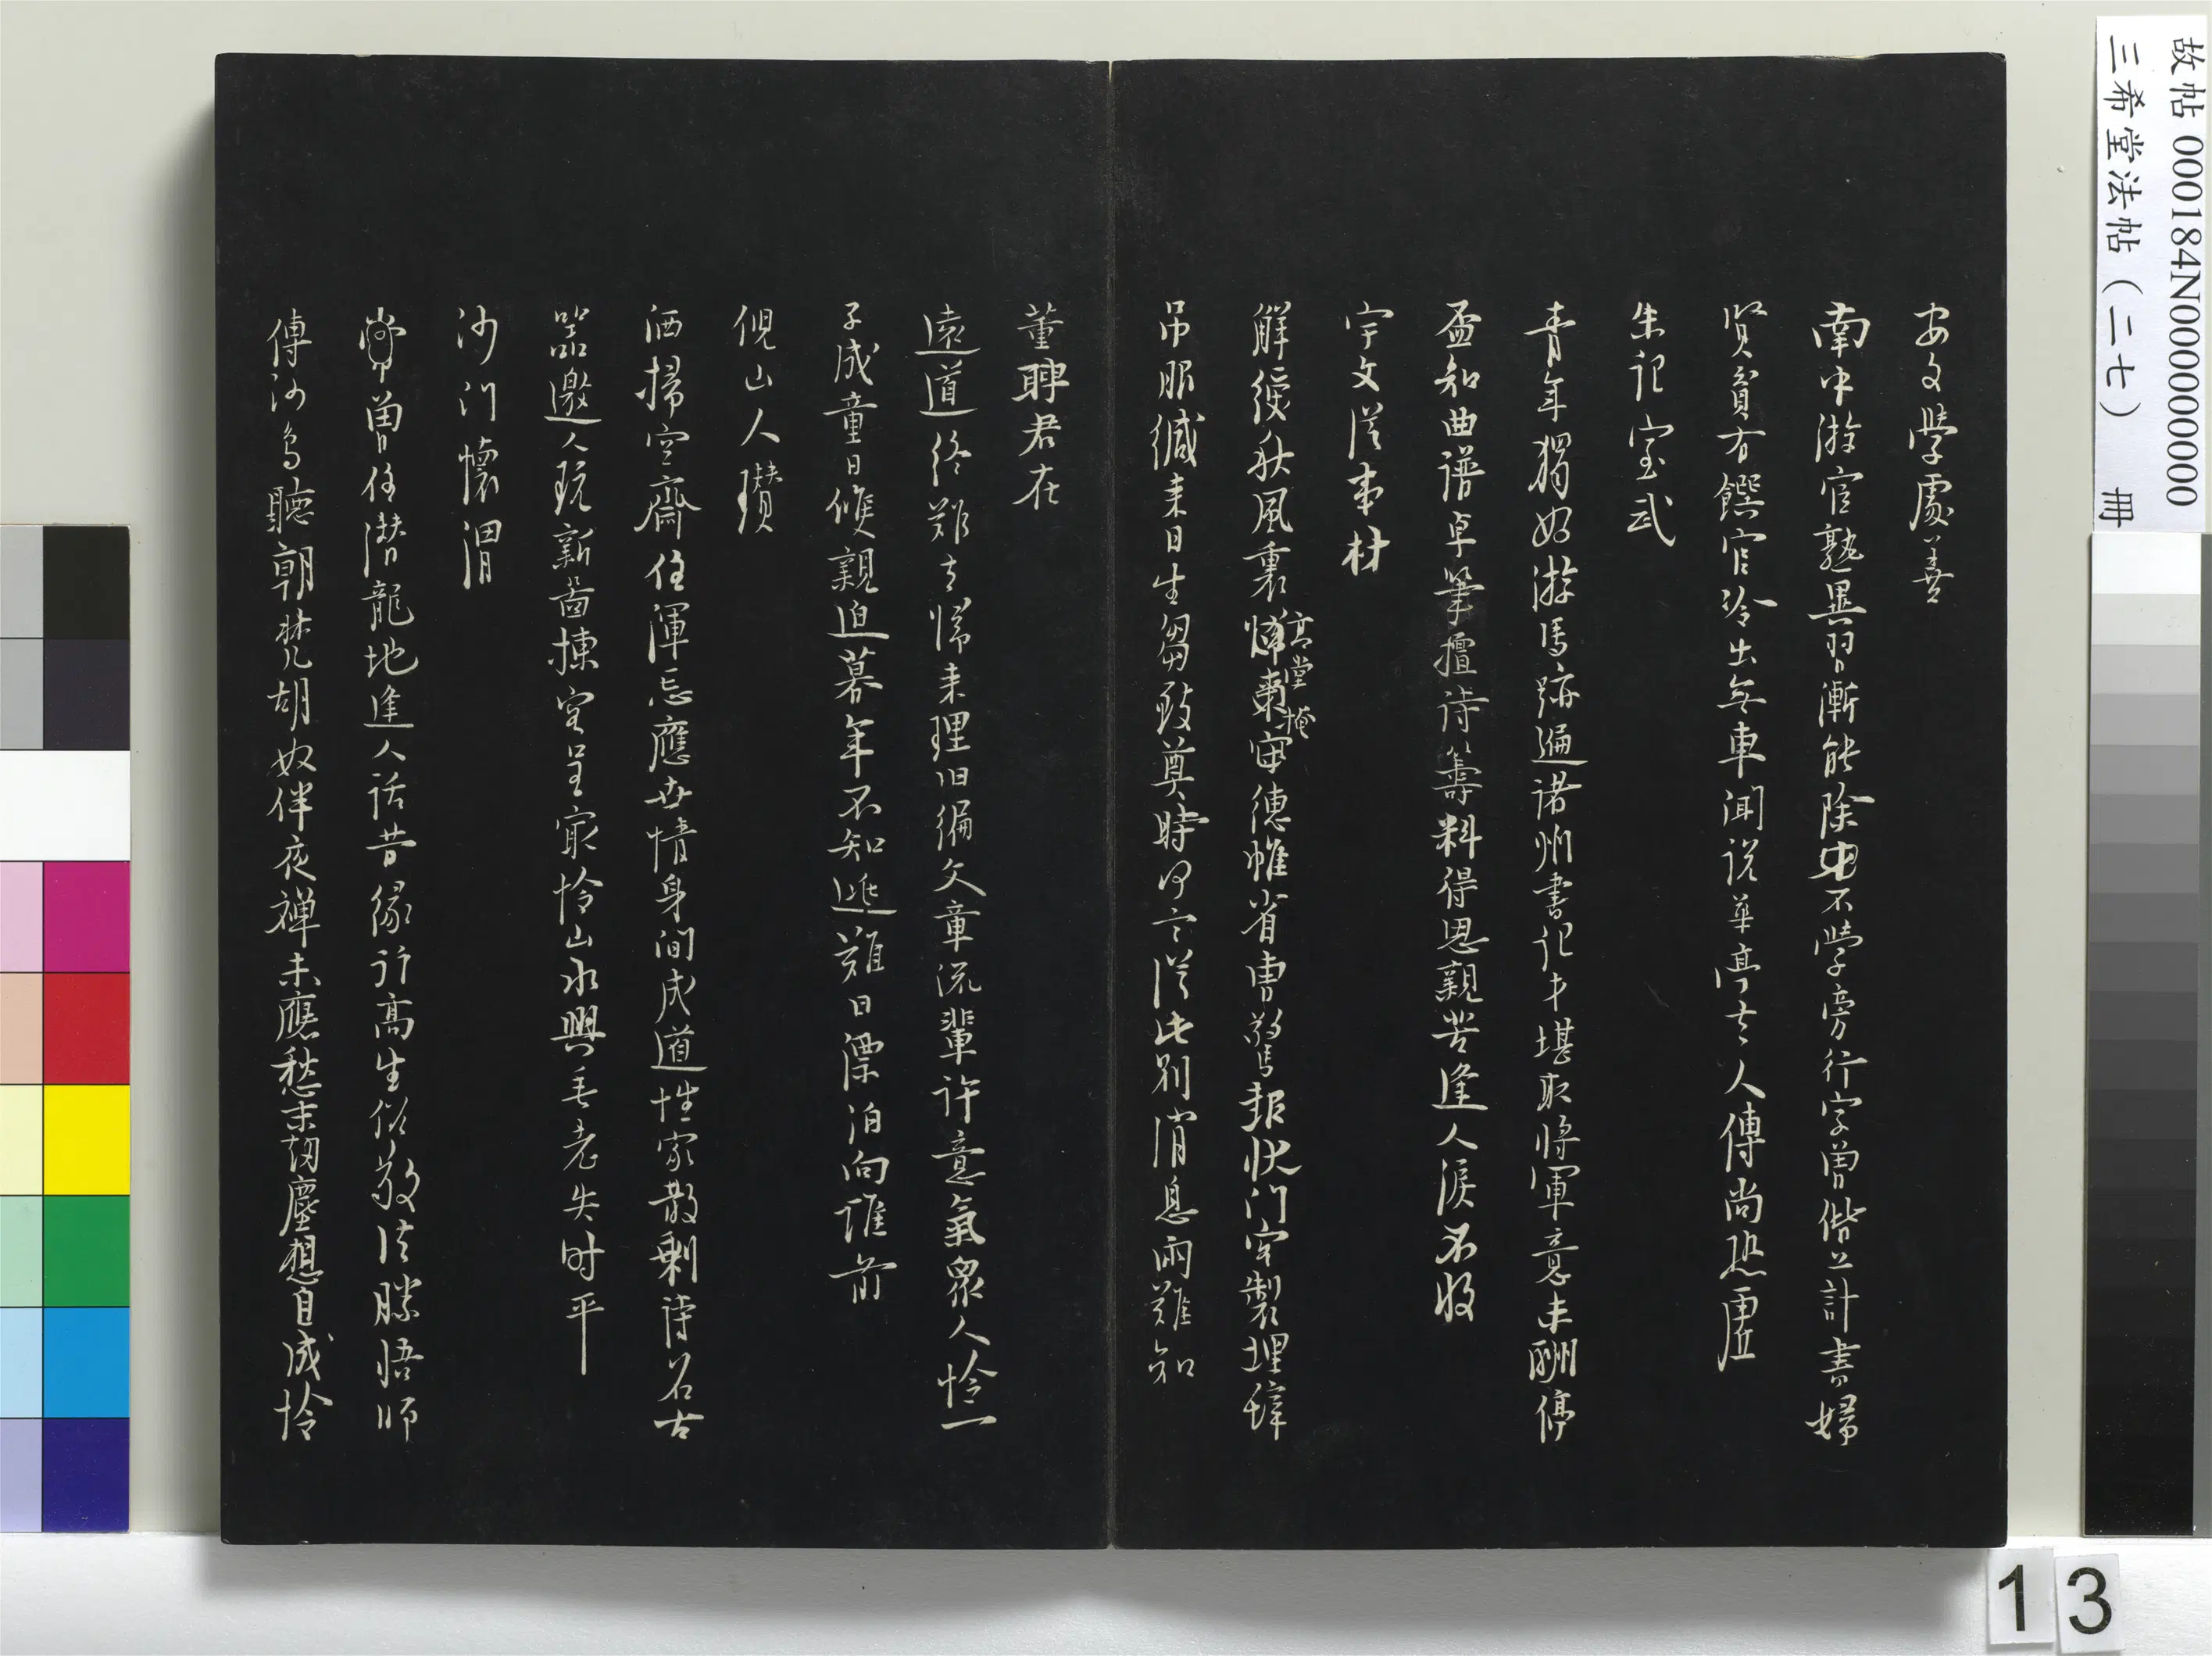 故帖 000184N000000000
三希堂法帖(二七) 冊
安文學處善
南中游宦熟異習漸能除不學旁行字曾偕上計書婦
賢貧有饌官冷出無車聞說華亭去人傳尚恐虛
朱記室武
青年獨好游馬跡遍諸州書記才堪取將軍意未酬停
盃知曲譜卓筆擅詩籌料得思親苦逢人淚不收
宇文從事材
解綬秋風裏高堂掩德帷省曹驚報狀門客製埋辭
吊服緘来日生芻致奠時何言從此別消息兩難知
董聘君在
遠道終難去歸来理旧編文章流輩許意氣眾人憐一
子成童日雙親迫暮年不知逃難日漂泊向誰前
倪山人瓚
洒掃空齋住渾忘應世情身閒成道性家散剩詩名古
器邀人玩新圖揀客呈家憐山水興垂老失时平
沙门懷渭
曾住潛龍地逢人話昔緣行高生俗敬法勝悟師
傳沙鳥聽朝梵胡奴伴夜禪未應愁末劫塵想自成憐
13